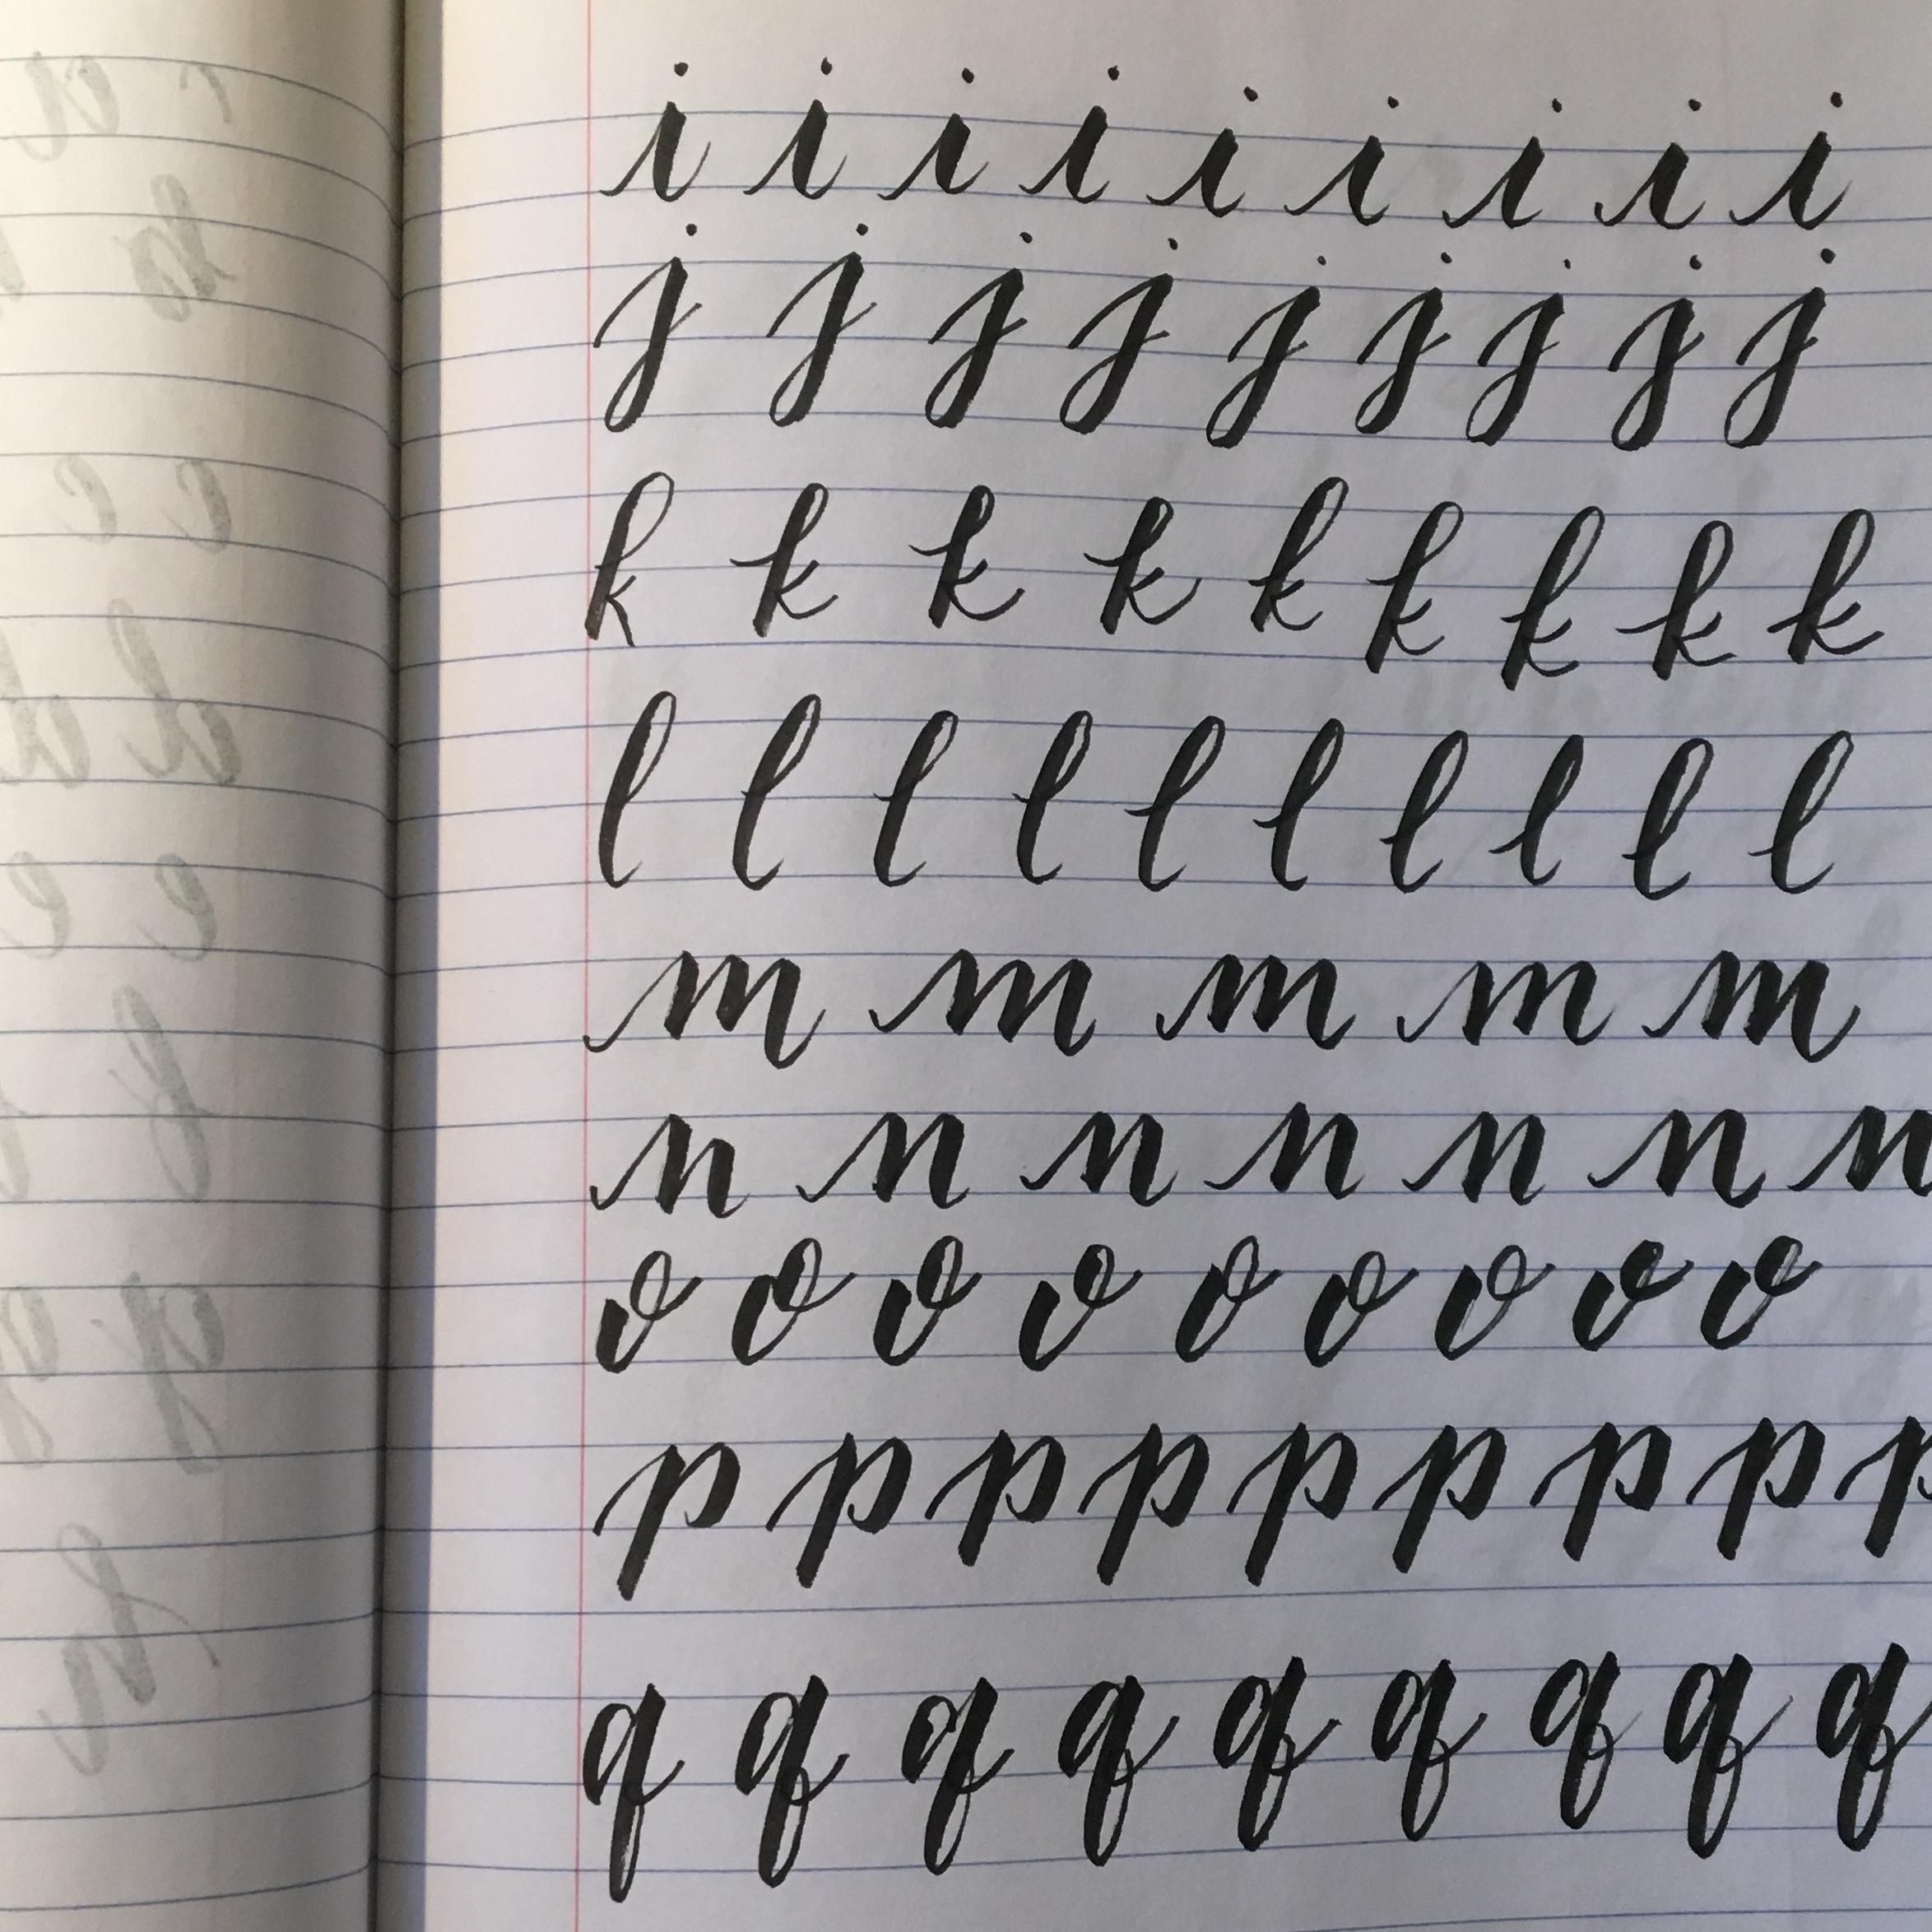 i i i i i i i i i
j j j j j j j j j
k k k k k k k k k
l l l l l l l l l l
m m m m m
n n n n n n n
o o o o o o o o o
p p p p p p p p p
q q q q q q q q q